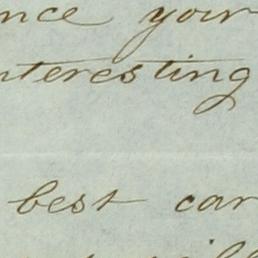 nce your
nteresting
best car